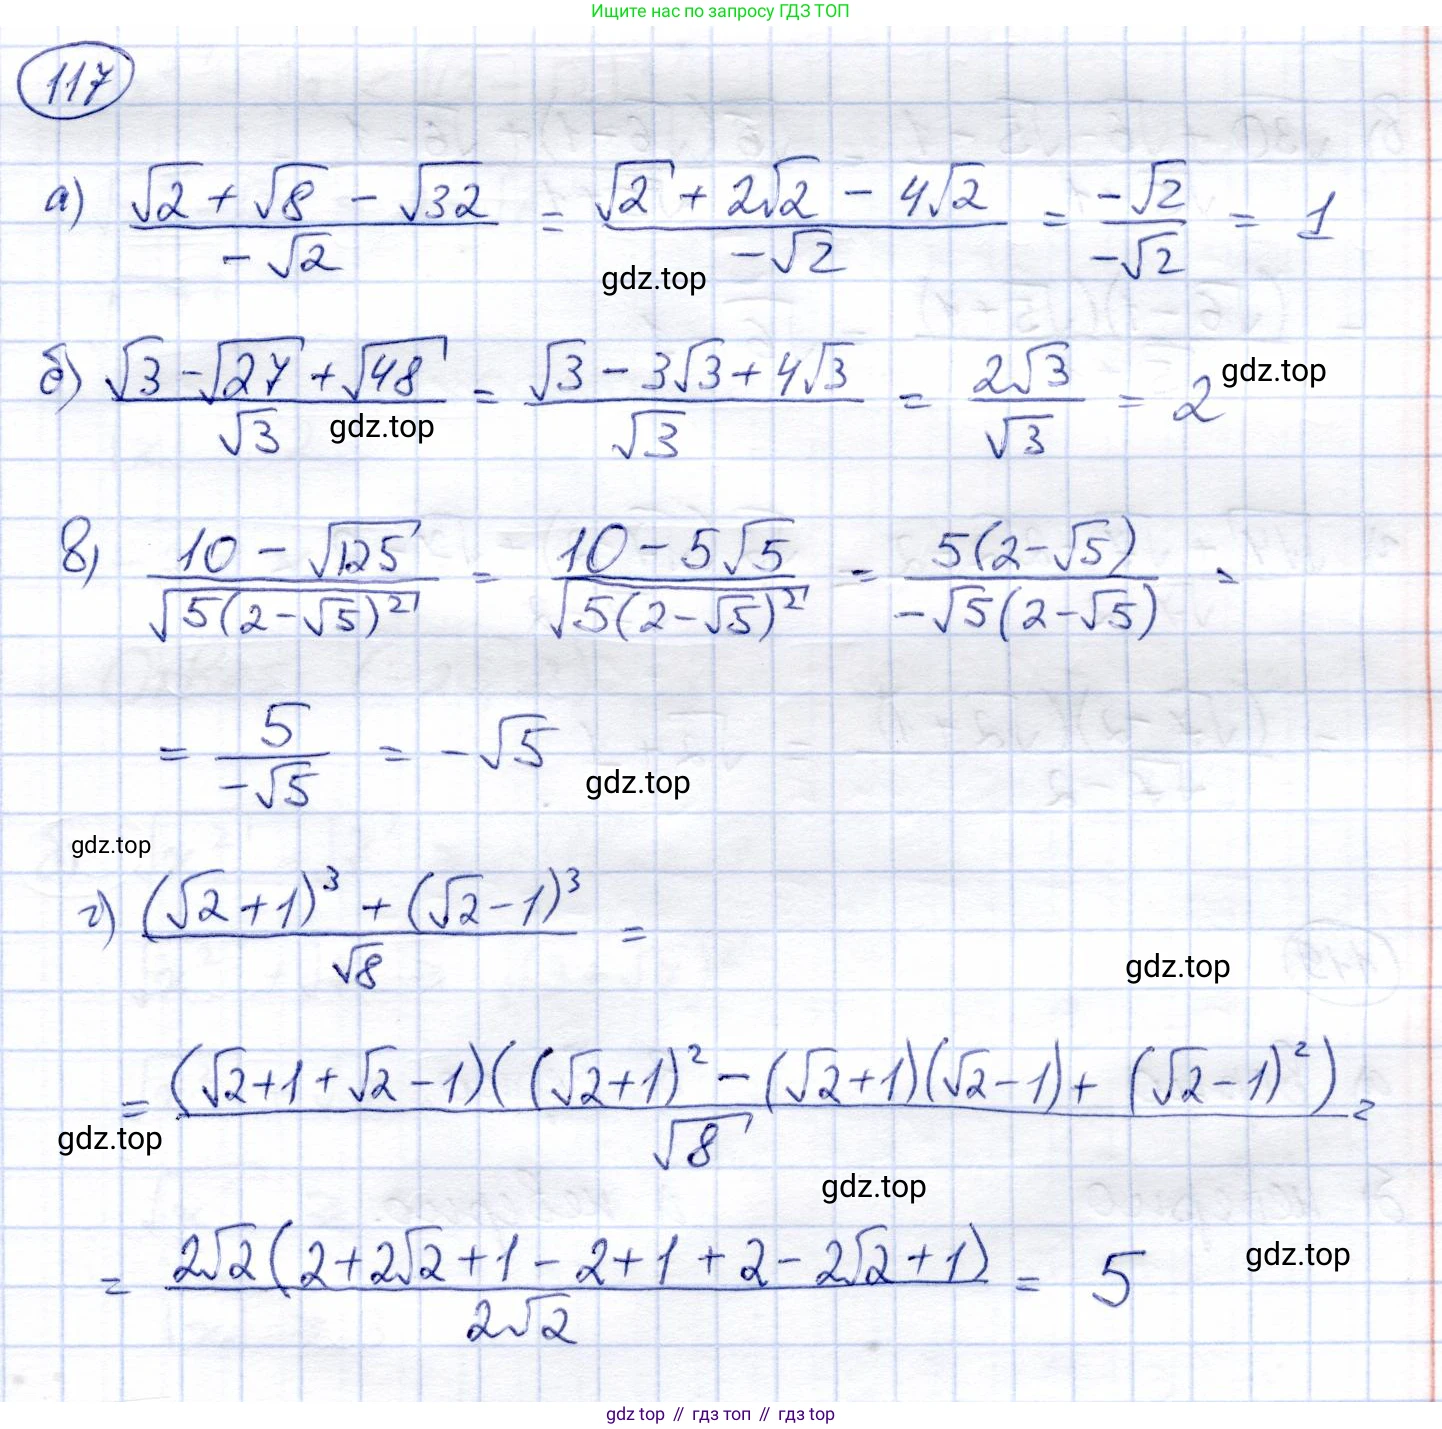 Ищите нас по запросу ГДЗ ТОП
117
а) (√2 + √8 − √32)/(−√2) = (√2 + 2√2 − 4√2)/(−√2) = (−√2)/(−√2) = 1
gdz.top
б) (√3 − √27 + √48)/√3 = (√3 − 3√3 + 4√3)/√3 = 2√3/√3 = 2
gdz.top
gdz.top
в) (10 − √125)/√(5(2−√5)²) = (10 − 5√5)/√(5(2−√5)²) = 5(2−√5)/(−√5(2−√5)) =
= 5/(−√5) = −√5
gdz.top
gdz.top
г) ((√2+1)³ + (√2−1)³)/√8 =
gdz.top
= (√2+1+√2−1)((√2+1)² − (√2+1)(√2−1) + (√2−1)²)/√8 =
gdz.top
gdz.top
= 2√2(2+2√2+1−2+1+2−2√2+1)/(2√2) = 5
gdz.top
gdz top // гдз топ // гдз top